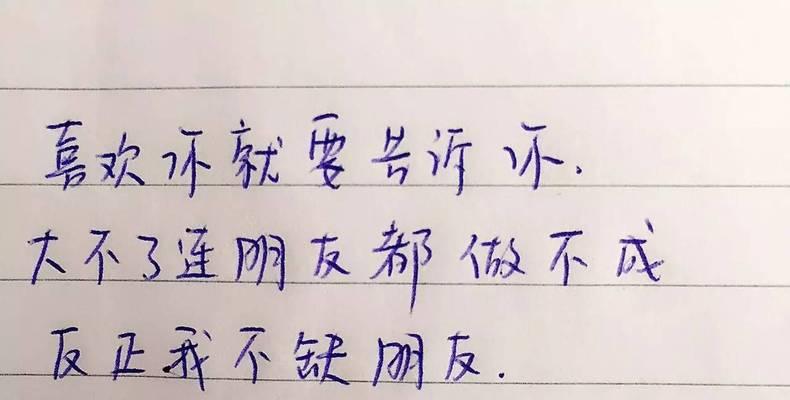 喜欢你就要告诉你.
大不了连朋友都做不成
反正我不缺朋友.